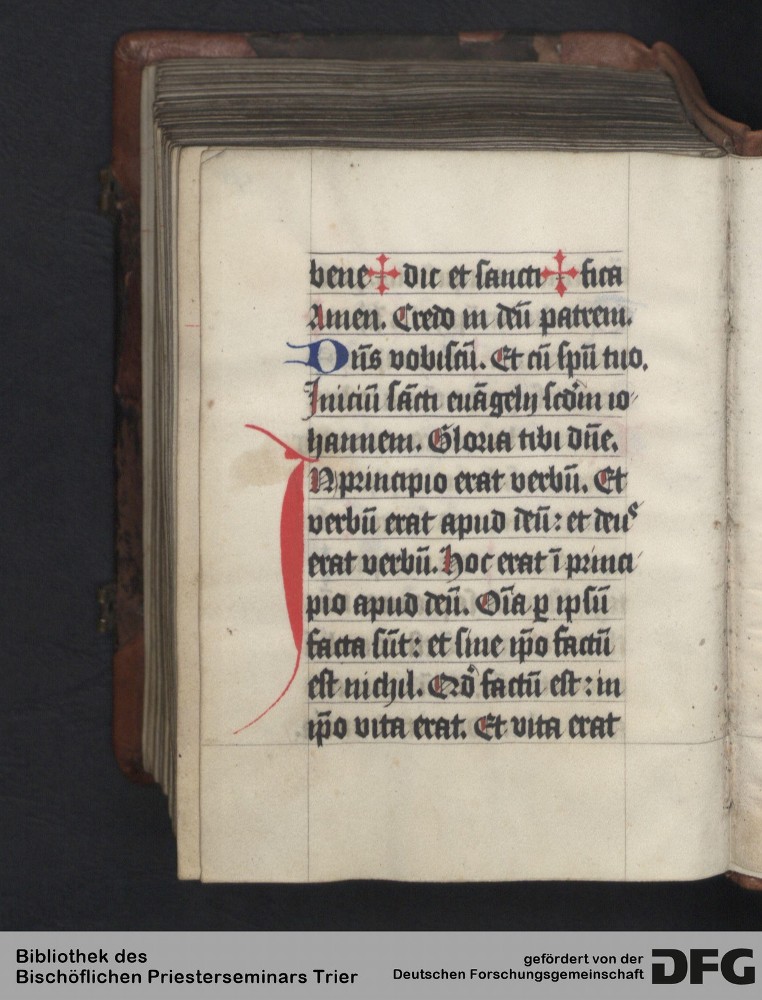 bene ✠ dic et sancti ✠ fica
Amen. Credo in deū patrem.
Dn̄s vobiscū. Et cū spū tuo.
Iniciū sācti euāgelij scd̄m io
hannem. Gloria tibi dn̄e.
IN principio erat verbū. Et
verbū erat apud deū: et deuˢ
erat verbū. Hoc erat ī princi
pio apud deū. Oīa ꝑ ipsū
facta sūt: et sine ip̄o factū
est nichil. Qd̓ factū est: in
ip̄o vita erat. Et vita erat
Bibliothek des
Bischöflichen Priesterseminars Trier
gefördert von der
Deutschen Forschungsgemeinschaft DFG